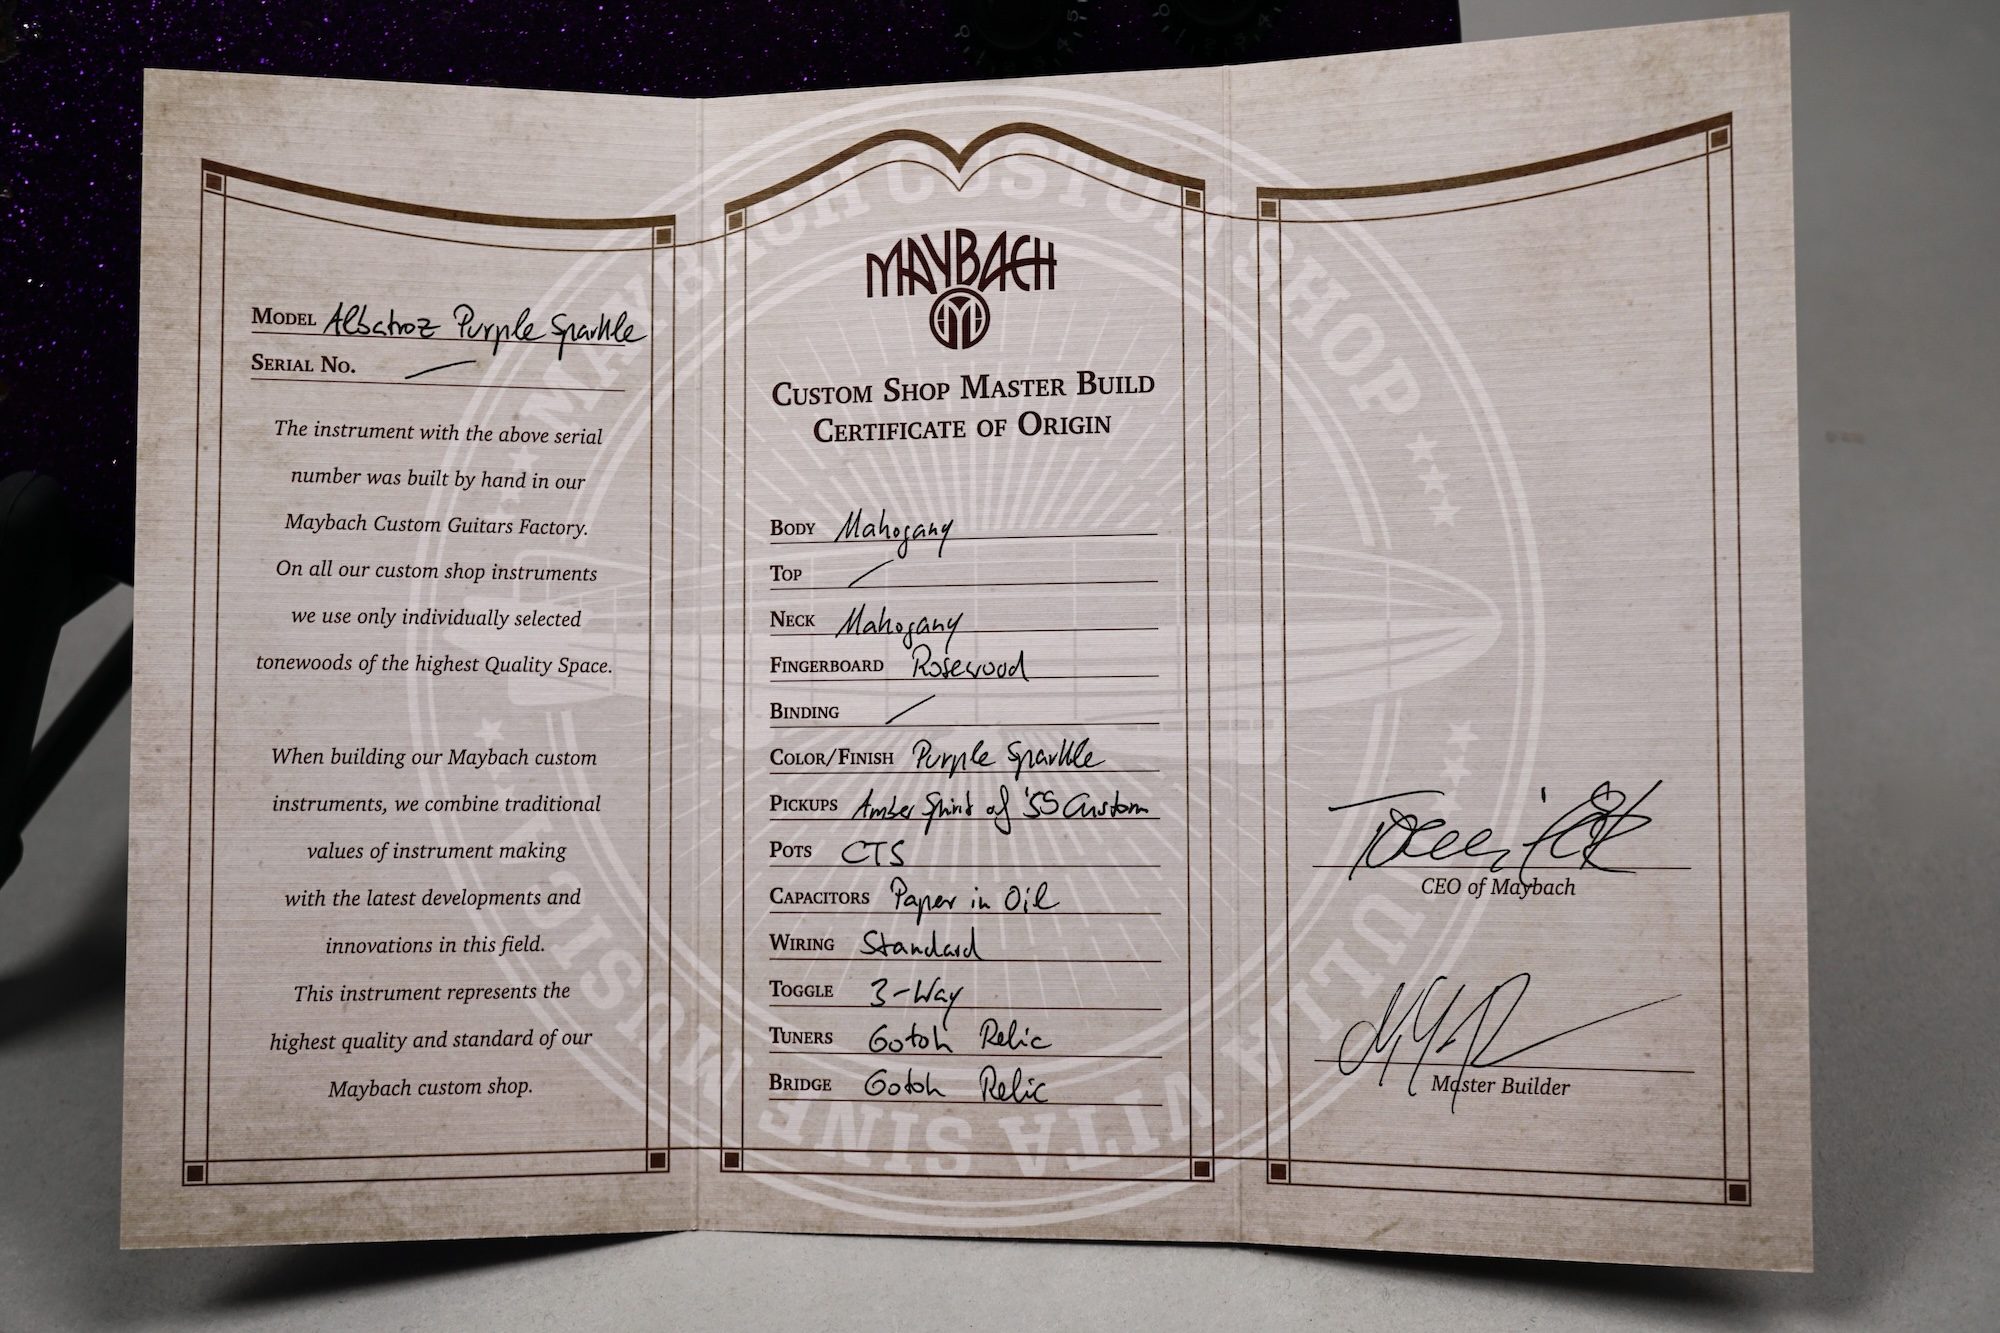 Model Albatroz Purple Sparkle
Serial No. —
The instrument with the above serial
number was built by hand in our
Maybach Custom Guitars Factory.
On all our custom shop instruments
we use only individually selected
tonewoods of the highest Quality Space.
When building our Maybach custom
instruments, we combine traditional
values of instrument making
with the latest developments and
innovations in this field.
This instrument represents the
highest quality and standard of our
Maybach custom shop.
MAYBACH
M
Custom Shop Master Build
Certificate of Origin
Body Mahogany
Top /
Neck Mahogany
Fingerboard Rosewood
Binding /
Color/Finish Purple Sparkle
Pickups Amber Spirit of '55 Custom
Pots CTS
Capacitors Paper in Oil
Wiring Standard
Toggle 3-Way
Tuners Gotoh Relic
Bridge Gotoh Relic
CEO of Maybach
Master Builder
MAYBACH CUSTOM SHOP
VITA SINE MUSICA NULLA VITA